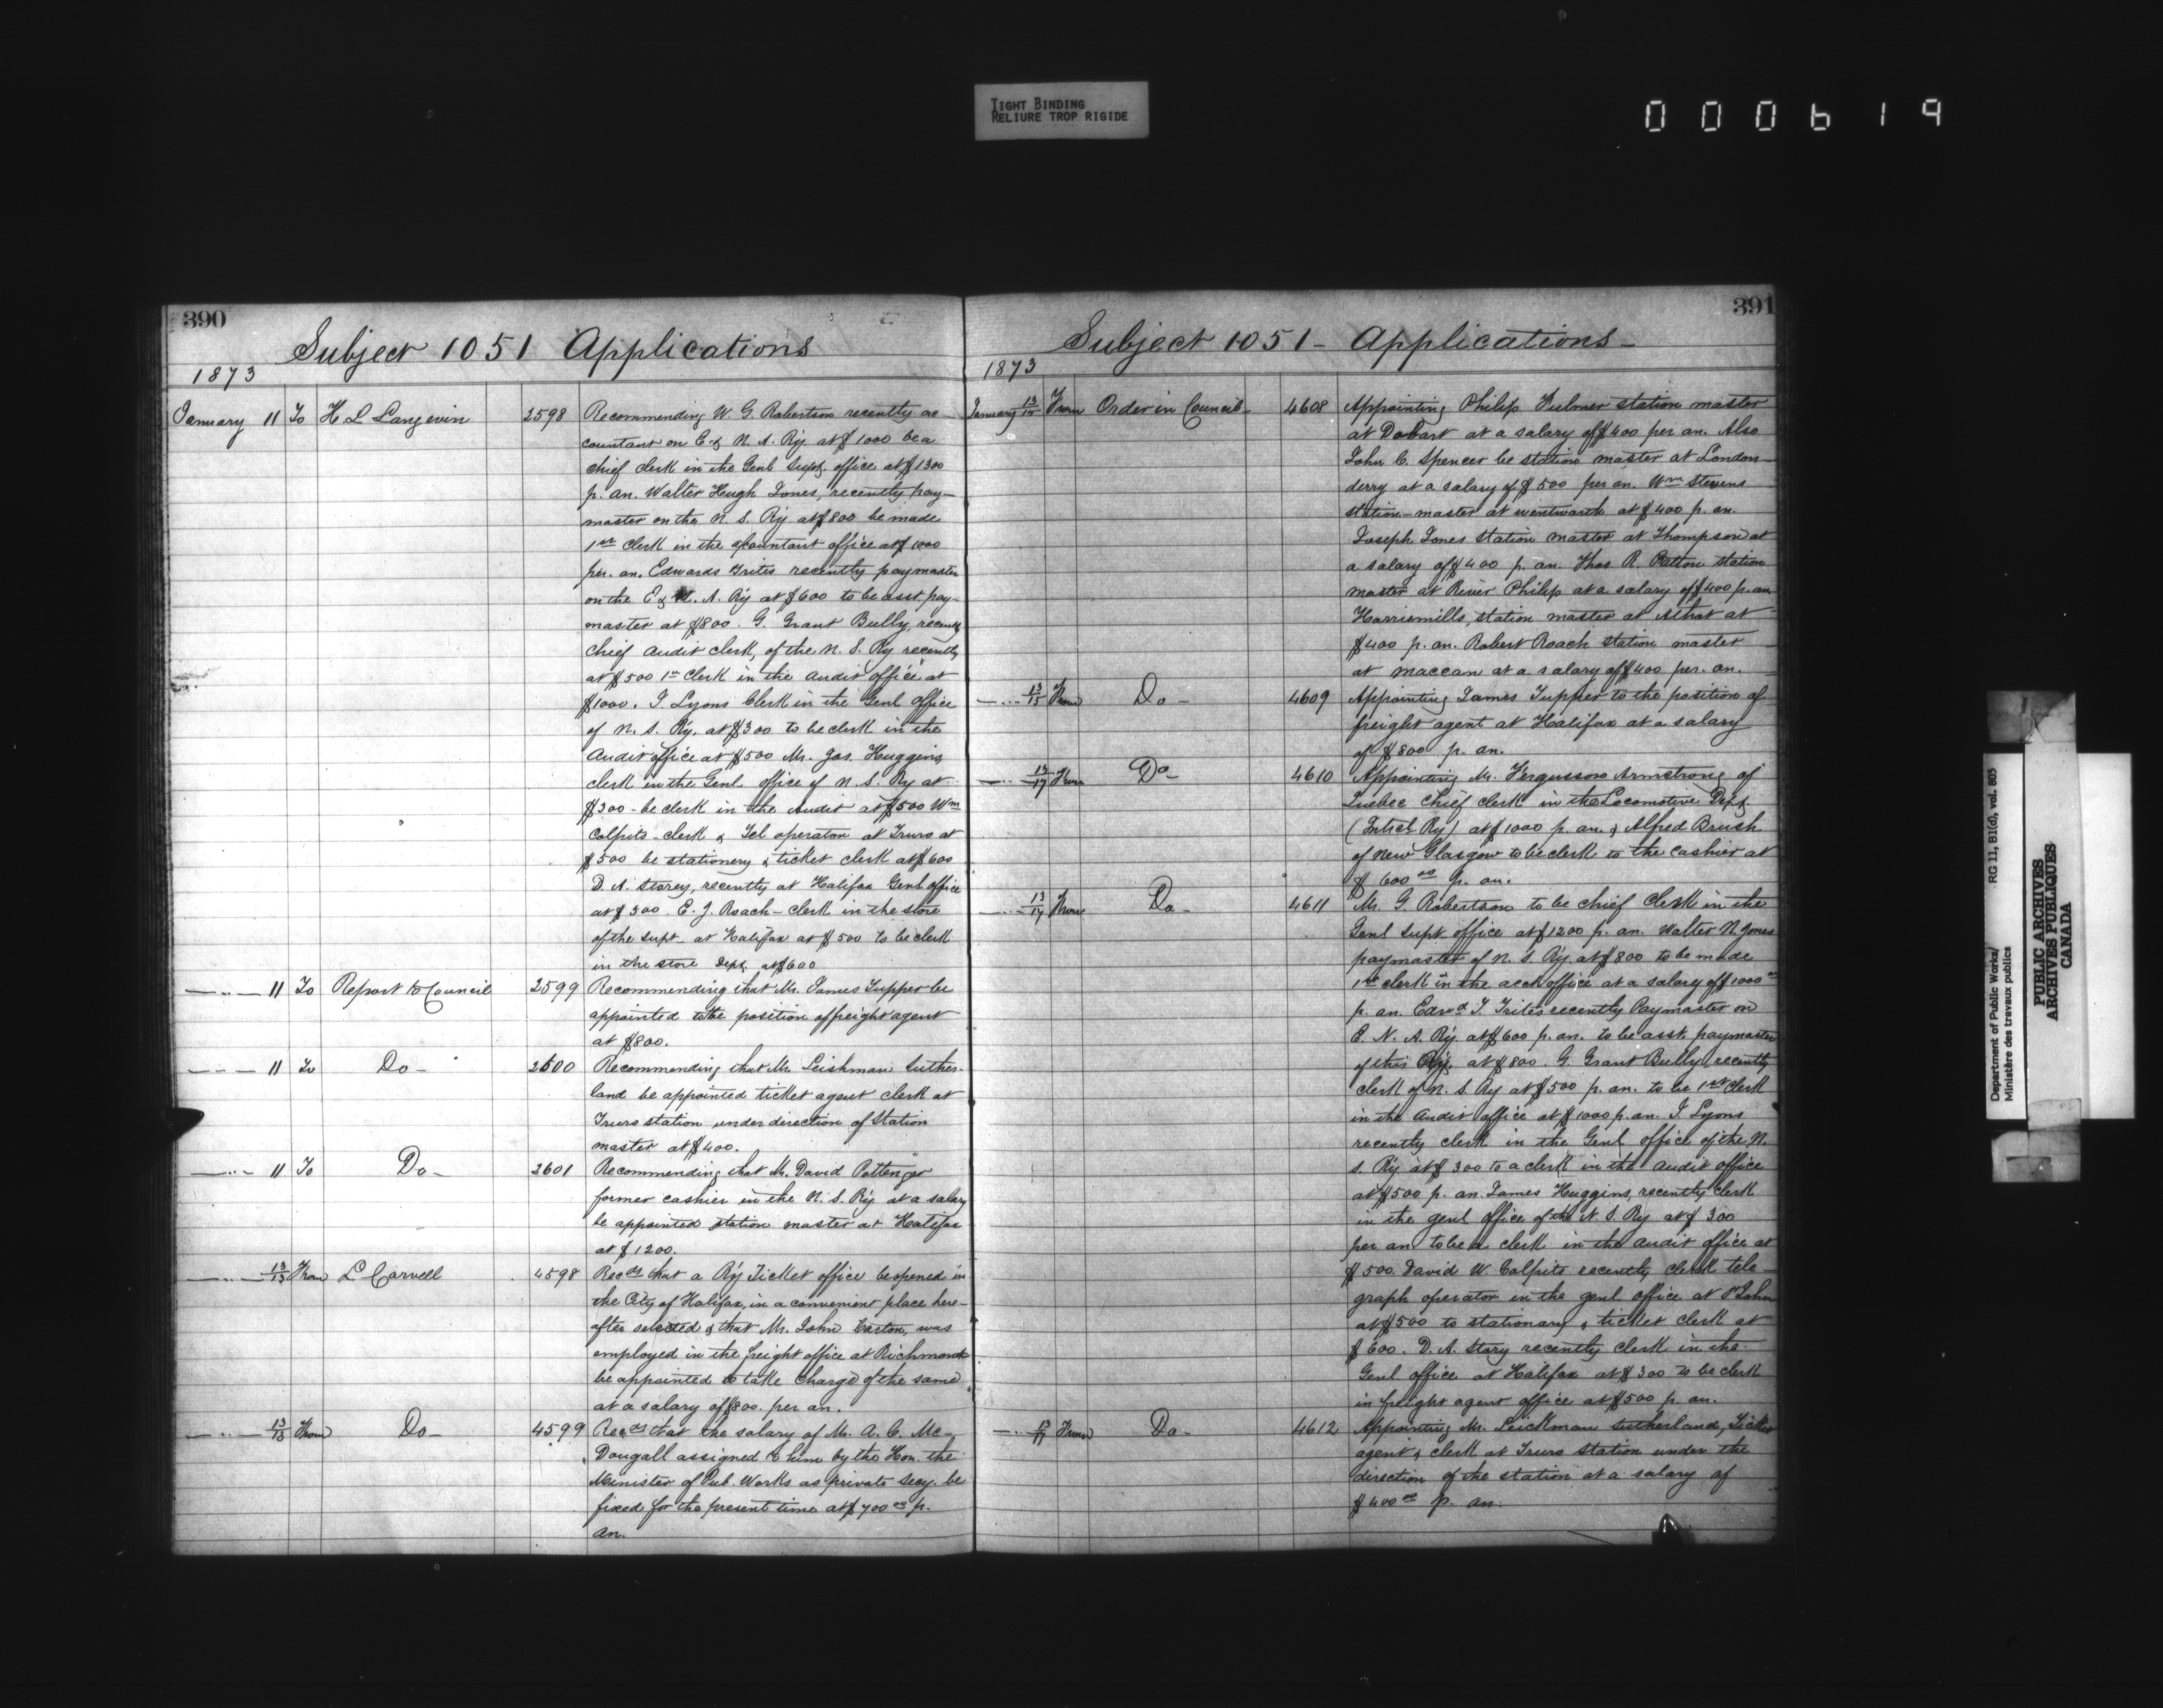 TIGHT BINDING
RELIURE TROP RIGIDE
000619
390
Subject 1051 Applications
1873
January 11 To H L Langevin 2598 Recommending W. G. Robertson recently ac-
countant on E & N. A. Ry. at $1000 be a
chief clerk in the Genl Supt. office at $1300
p. an. Walter Hugh Jones, recently pay-
master on the N. S. Ry at $800 be made
1st clerk in the accountant office at $1000
per. an. Edwards Trites recently paymaster
on the E & N. A. Ry at $600 to be asst pay-
master at $800. G. Grant Bully, recently
chief audit clerk, of the N. S. Ry recently
at $500 1st Clerk in the audit office at
$1000. J. Lyons Clerk in the Genl Office
of N. S. Ry. at $300 to be clerk in the
Audit office at $500 Mr. Jas. Huggins,
clerk in the Genl office of N. S. Ry at
$300 - be clerk in the Audit at $500 Wm
Colpits - clerk & Tel operator at Truro at
$500 be stationery & ticket clerk at $600
D. A. Storey, recently at Halifax Genl office
at $300. E. J. Roach - clerk in the store
of the supt. at Halifax at $500 to be clerk
in the store Dept. at $600
— " — 11 To Report to Council 2599 Recommending that Mr. James Tupper be
appointed to the position of freight agent
at $800.
— " — 11 To Do - 2600 Recommending that Mr. Leishman Suther-
land be appointed ticket agent clerk at
Truro station under direction of Station
master at $400.
— " — 11 To Do - 2601 Recommending that M. David Pottenger
former cashier in the N. S. Ry at a salary
be appointed station master at Halifax
at $1200.
— " — 13/13 From L Carvell 4598 Recds that a Ry Ticket office be opened in
the City of Halifax, in a convenient place here-
after selected & that Mr. John Carton, was
employed in the freight office at Richmond
be appointed to take charge of the same
at a salary of $800. per an.
— " — 13/13 From Do - 4599 Recds that the salary of Mr. A. C. Mc-
Dougall assigned to him by the Hon. the
Minister of Pub. Works as private Secy. be
fixed for the present time at $700 00 p.
an.
391
Subject 1051 - Applications -
1873
January 13/15 From Order in Council - 4608 Appointing Philip Fulmer station master
at Debart at a salary of $400 per an. Also
John C. Spencer be station master at London-
derry at a salary of $500 per an. Wm Stevens
station-master at Wentworth at $400 p. an.
Joseph Jones station master at Thompson at
a salary of $400 p. an. Thos. R. Patton station
master at River Philip at a salary of $400 p. an.
Harris mills, station master at Athat at
$400 p. an. Robert Roach station master
at Maccan at a salary of $400 per. an.
— " — 13/15 From Do - 4609 Appointing James Tupper to the position of
freight agent at Halifax at a salary
of $800 p. an.
— " — 13/17 From Do - 4610 Appointing Mr. Fergusson Armstrong of
Quebec Chief clerk in the Locomotive Dept.
(Intrcl. Ry) at $1000 p. an. & Alfred Brush
of New Glasgow to be clerk to the cashier at
$600 00 p. an.
— " — 13/17 From Do - 4611 Mr. G. Robertson to be chief Clerk in the
Genl Supt office at $1200 p. an. Walter H. Jones
paymaster of N. S. Ry. at $800 to be made
1st clerk in the acct office at a salary of $1000 00
p. an. Edwd J. Trites recently Paymaster on
E. N. A. Ry. at $600 p. an. to be asst. paymaster
of this Ry. at $800 G. Grant Bully recently
clerk of N. S. Ry at $500 p. an. to be 1st clerk
in the Audit office at $1000 p. an. J. Lyons
recently clerk in the Genl office of the N.
S. Ry at $300 to a clerk in the audit office
at $500 p. an. James Huggins, recently clerk
in the genl office of the N. S. Ry at $300
per an to be a clerk in the audit office at
$500. David W. Colpits recently clerk tele-
graph operator in the genl office at St John
at $500 to stationary & ticket clerk at
$600. D. A. Story recently clerk in the
Genl office at Halifax at $300 to be clerk
in freight agent office at $500 p. an.
— " — 13/17 From Do - 4612 Appointing Mr. Leickman Sutherland, Ticket
agent & clerk at Truro station under the
direction of the station at a salary of
$400 00 p. an.
Department of Public Works/ RG 11, B1(d), vol. 805
Ministère des travaux publics
PUBLIC ARCHIVES
ARCHIVES PUBLIQUES
CANADA